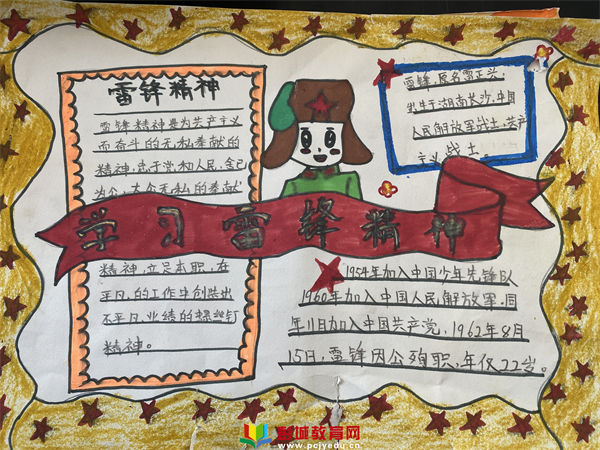 雷锋精神
雷锋精神是为共产主义
而奋斗的无私奉献的
精神，忠于党和人民，舍己
为公，大公无私的奉献
精神，立足本职，在
平凡的工作中创造出
不平凡业绩的螺丝钉
精神。
雷锋，原名雷正兴，
出生于湖南长沙，中国
人民解放军战士，共产
主义战士。
学习雷锋精神
1954年加入中国少年先锋队
1960年加入中国人民解放军，同
年11月加入中国共产党，1962年8月
15日，雷锋因公殉职，年仅22岁。
教育网
www.pcjyedu.cn